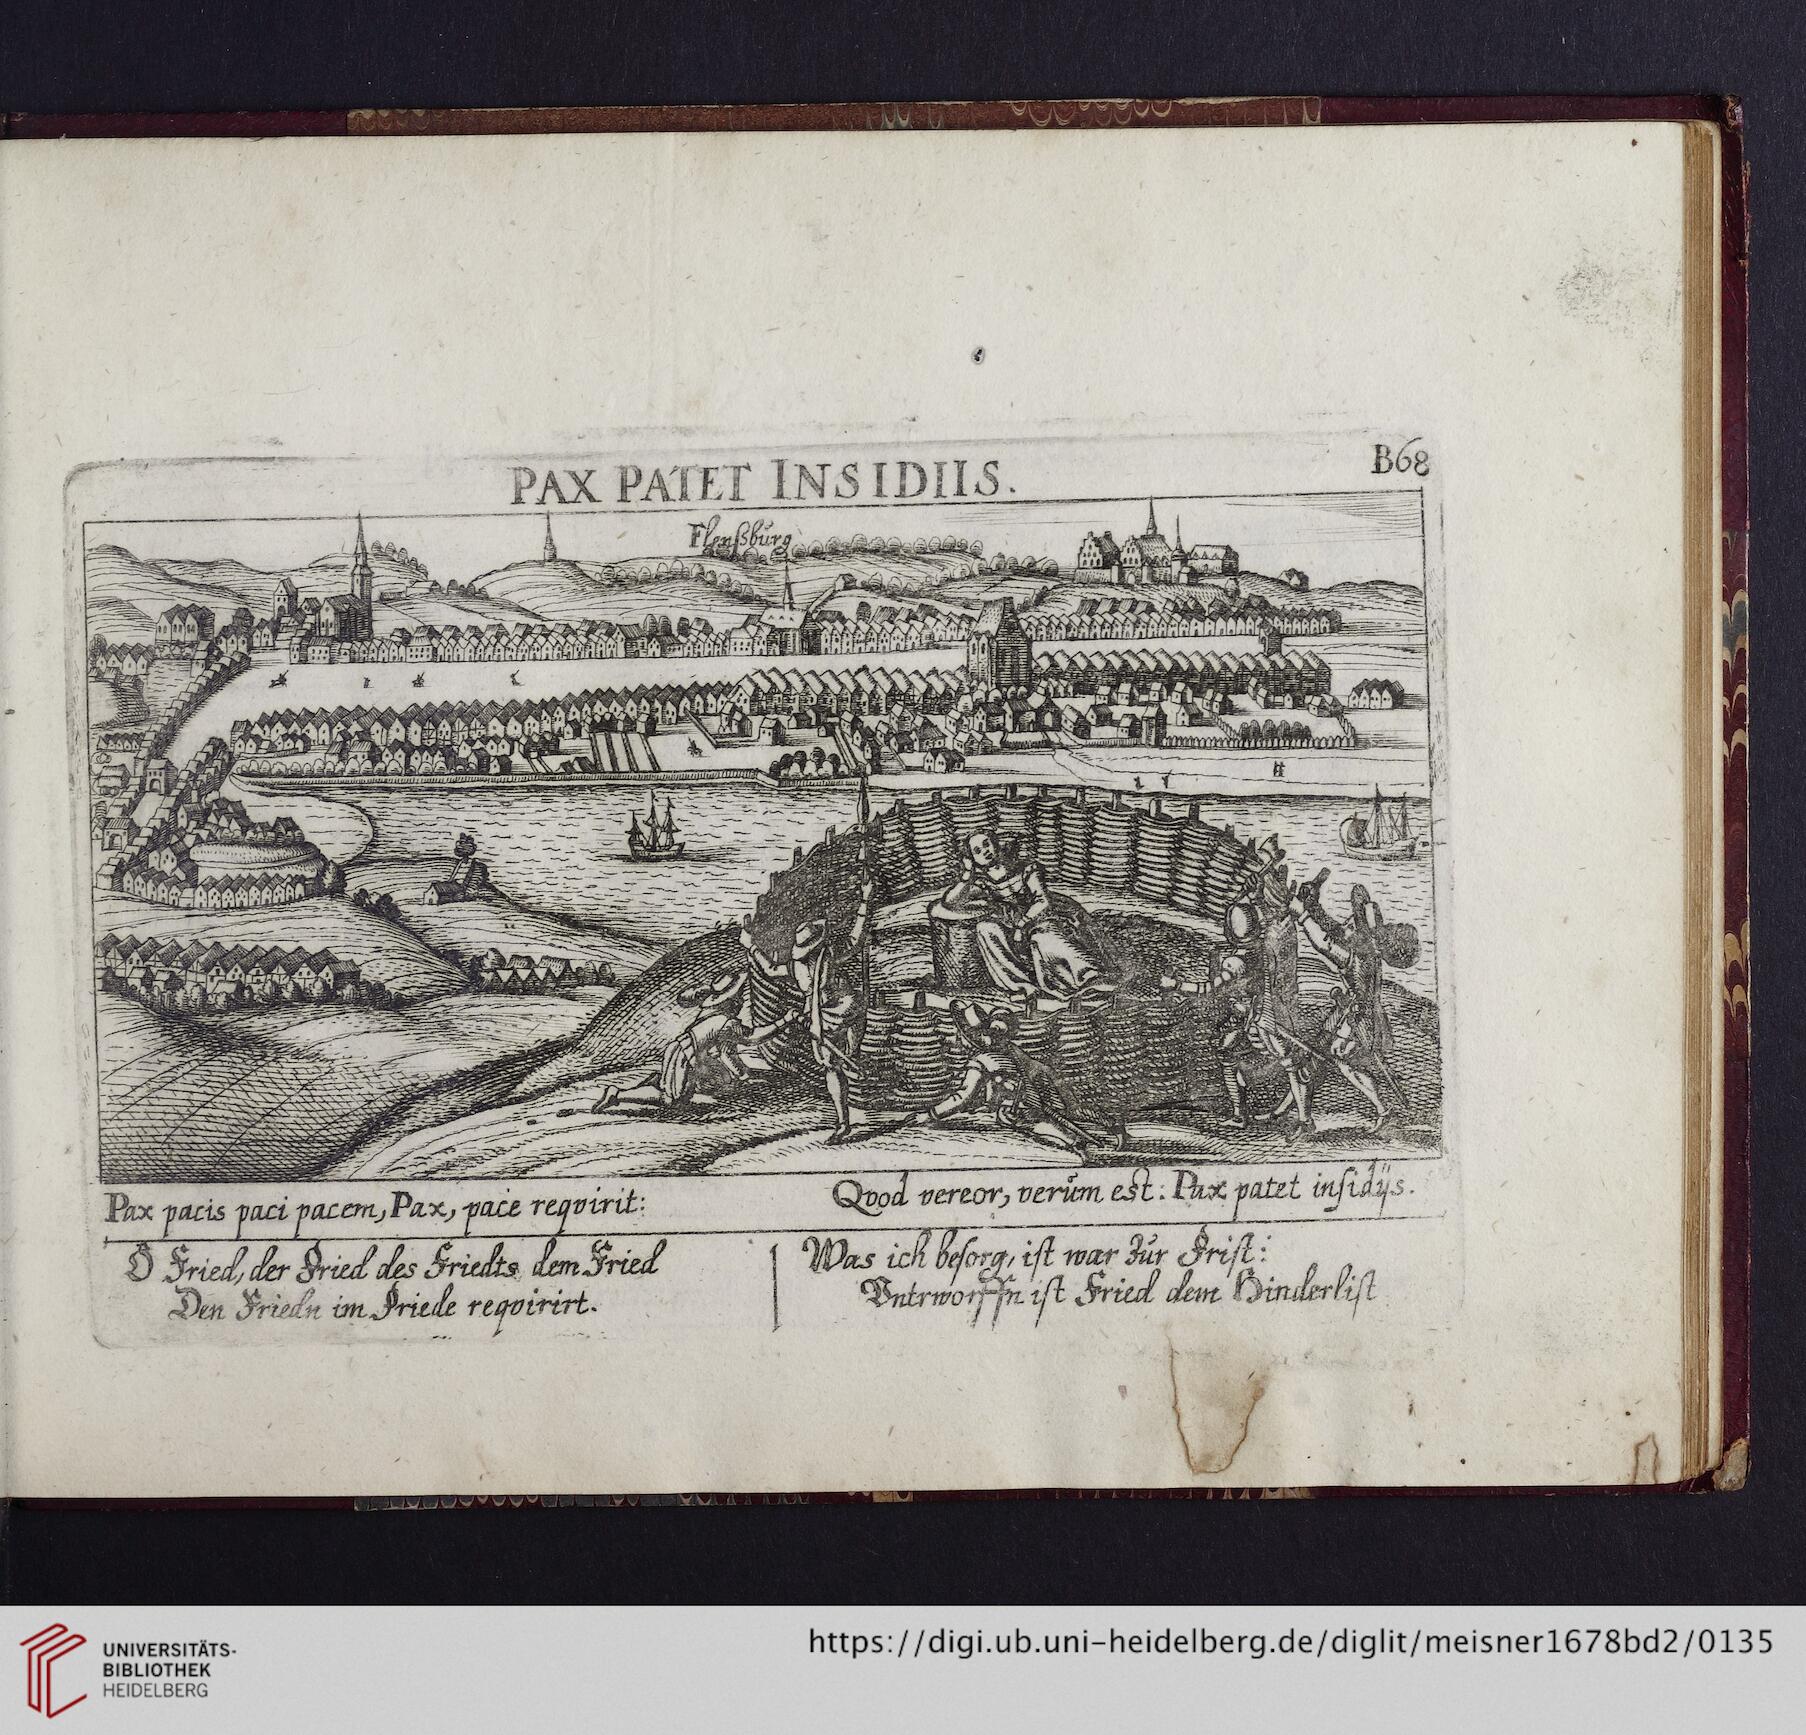 PAX PATET INSIDIIS.
B68
Flensburg
Pax pacis paci pacem, Pax, pace reqvirit:
Qvod vereor, verum est: Pax patet insidijs.
O Fried, der Fried des Friedts dem Fried
Den Friedn im Friede reqvirirt.
Was ich besorg, ist war zur Frist:
Vntrworffn ist Fried dem Hinderlist
UNIVERSITÄTS-
BIBLIOTHEK
HEIDELBERG
https://digi.ub.uni-heidelberg.de/diglit/meisner1678bd2/0135